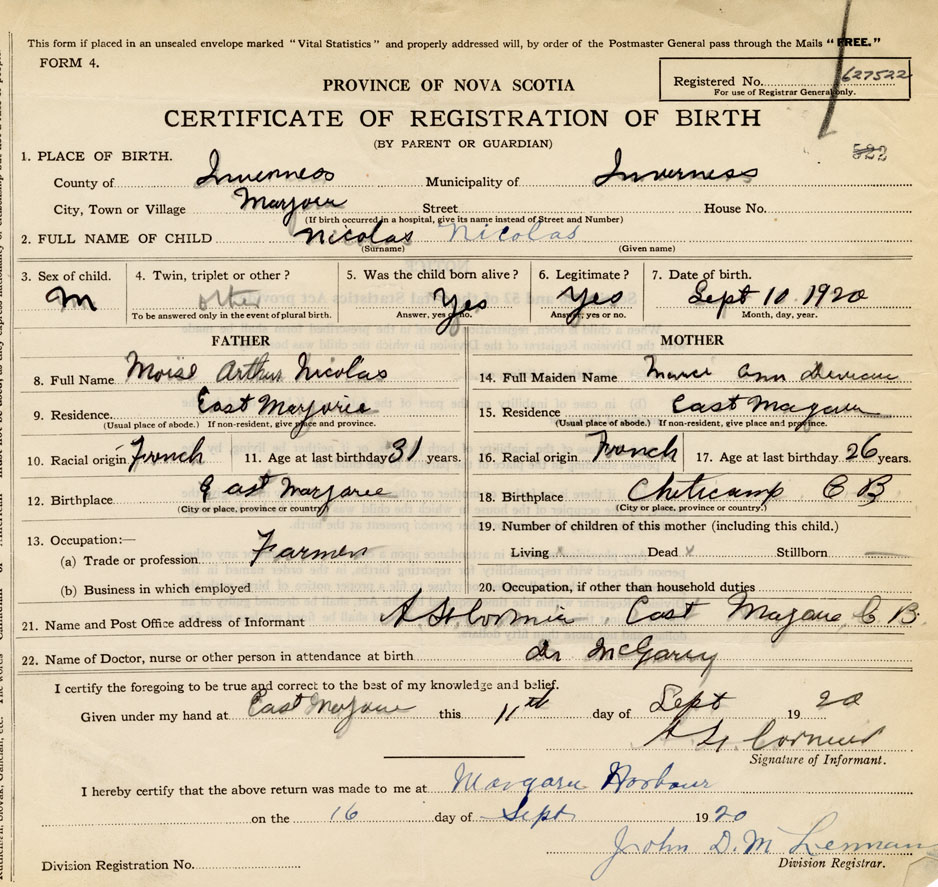 This form if placed in an unsealed envelope marked "Vital Statistics" and properly addressed will, by order of the Postmaster General pass through the Mails "FREE."
FORM 4.
Registered No. 627522
For use of Registrar General only.
PROVINCE OF NOVA SCOTIA
CERTIFICATE OF REGISTRATION OF BIRTH
(BY PARENT OR GUARDIAN)
522
1. PLACE OF BIRTH.
County of Inverness Municipality of Inverness
City, Town or Village Street House No.
(If birth occurred in a hospital, give its name instead of Street and Number)
2. FULL NAME OF CHILD Nicolas Nicolas
(Surname) (Given name)
3. Sex of child. 4. Twin, triplet or other? 5. Was the child born alive? 6. Legitimate? 7. Date of birth.
M other Yes Yes Sept 10. 1920
To be answered only in the event of plural birth. Answer, yes or no. Answer; yes or no. Month, day, year.
FATHER
8. Full Name Moise Arthur Nicolas
9. Residence. East Marjorie
(Usual place of abode.) If non-resident, give place and province.
10. Racial origin French 11. Age at last birthday 31 years.
12. Birthplace East Marjorie
(City or place, province or country)
13. Occupation:—
(a) Trade or profession Farmer
(b) Business in which employed
MOTHER
14. Full Maiden Name Ann
15. Residence East
(Usual place of abode.) If non-resident, give place and province.
16. Racial origin French 17. Age at last birthday 26 years.
18. Birthplace Cheticamp C B
(City or place, province or country.)
19. Number of children of this mother (including this child.)
Living x Dead x Stillborn —
20. Occupation, if other than household duties
21. Name and Post Office address of Informant A Cormier. East C B.
22. Name of Doctor, nurse or other person in attendance at birth Dr McGarry
I certify the foregoing to be true and correct to the best of my knowledge and belief.
Given under my hand at East this 11th day of Sept 1920
Cormier
Signature of Informant.
I hereby certify that the above return was made to me at Margaree Harbour
on the 16 day of Sept 1920
John D. McLennan
Division Registrar.
Division Registration No.